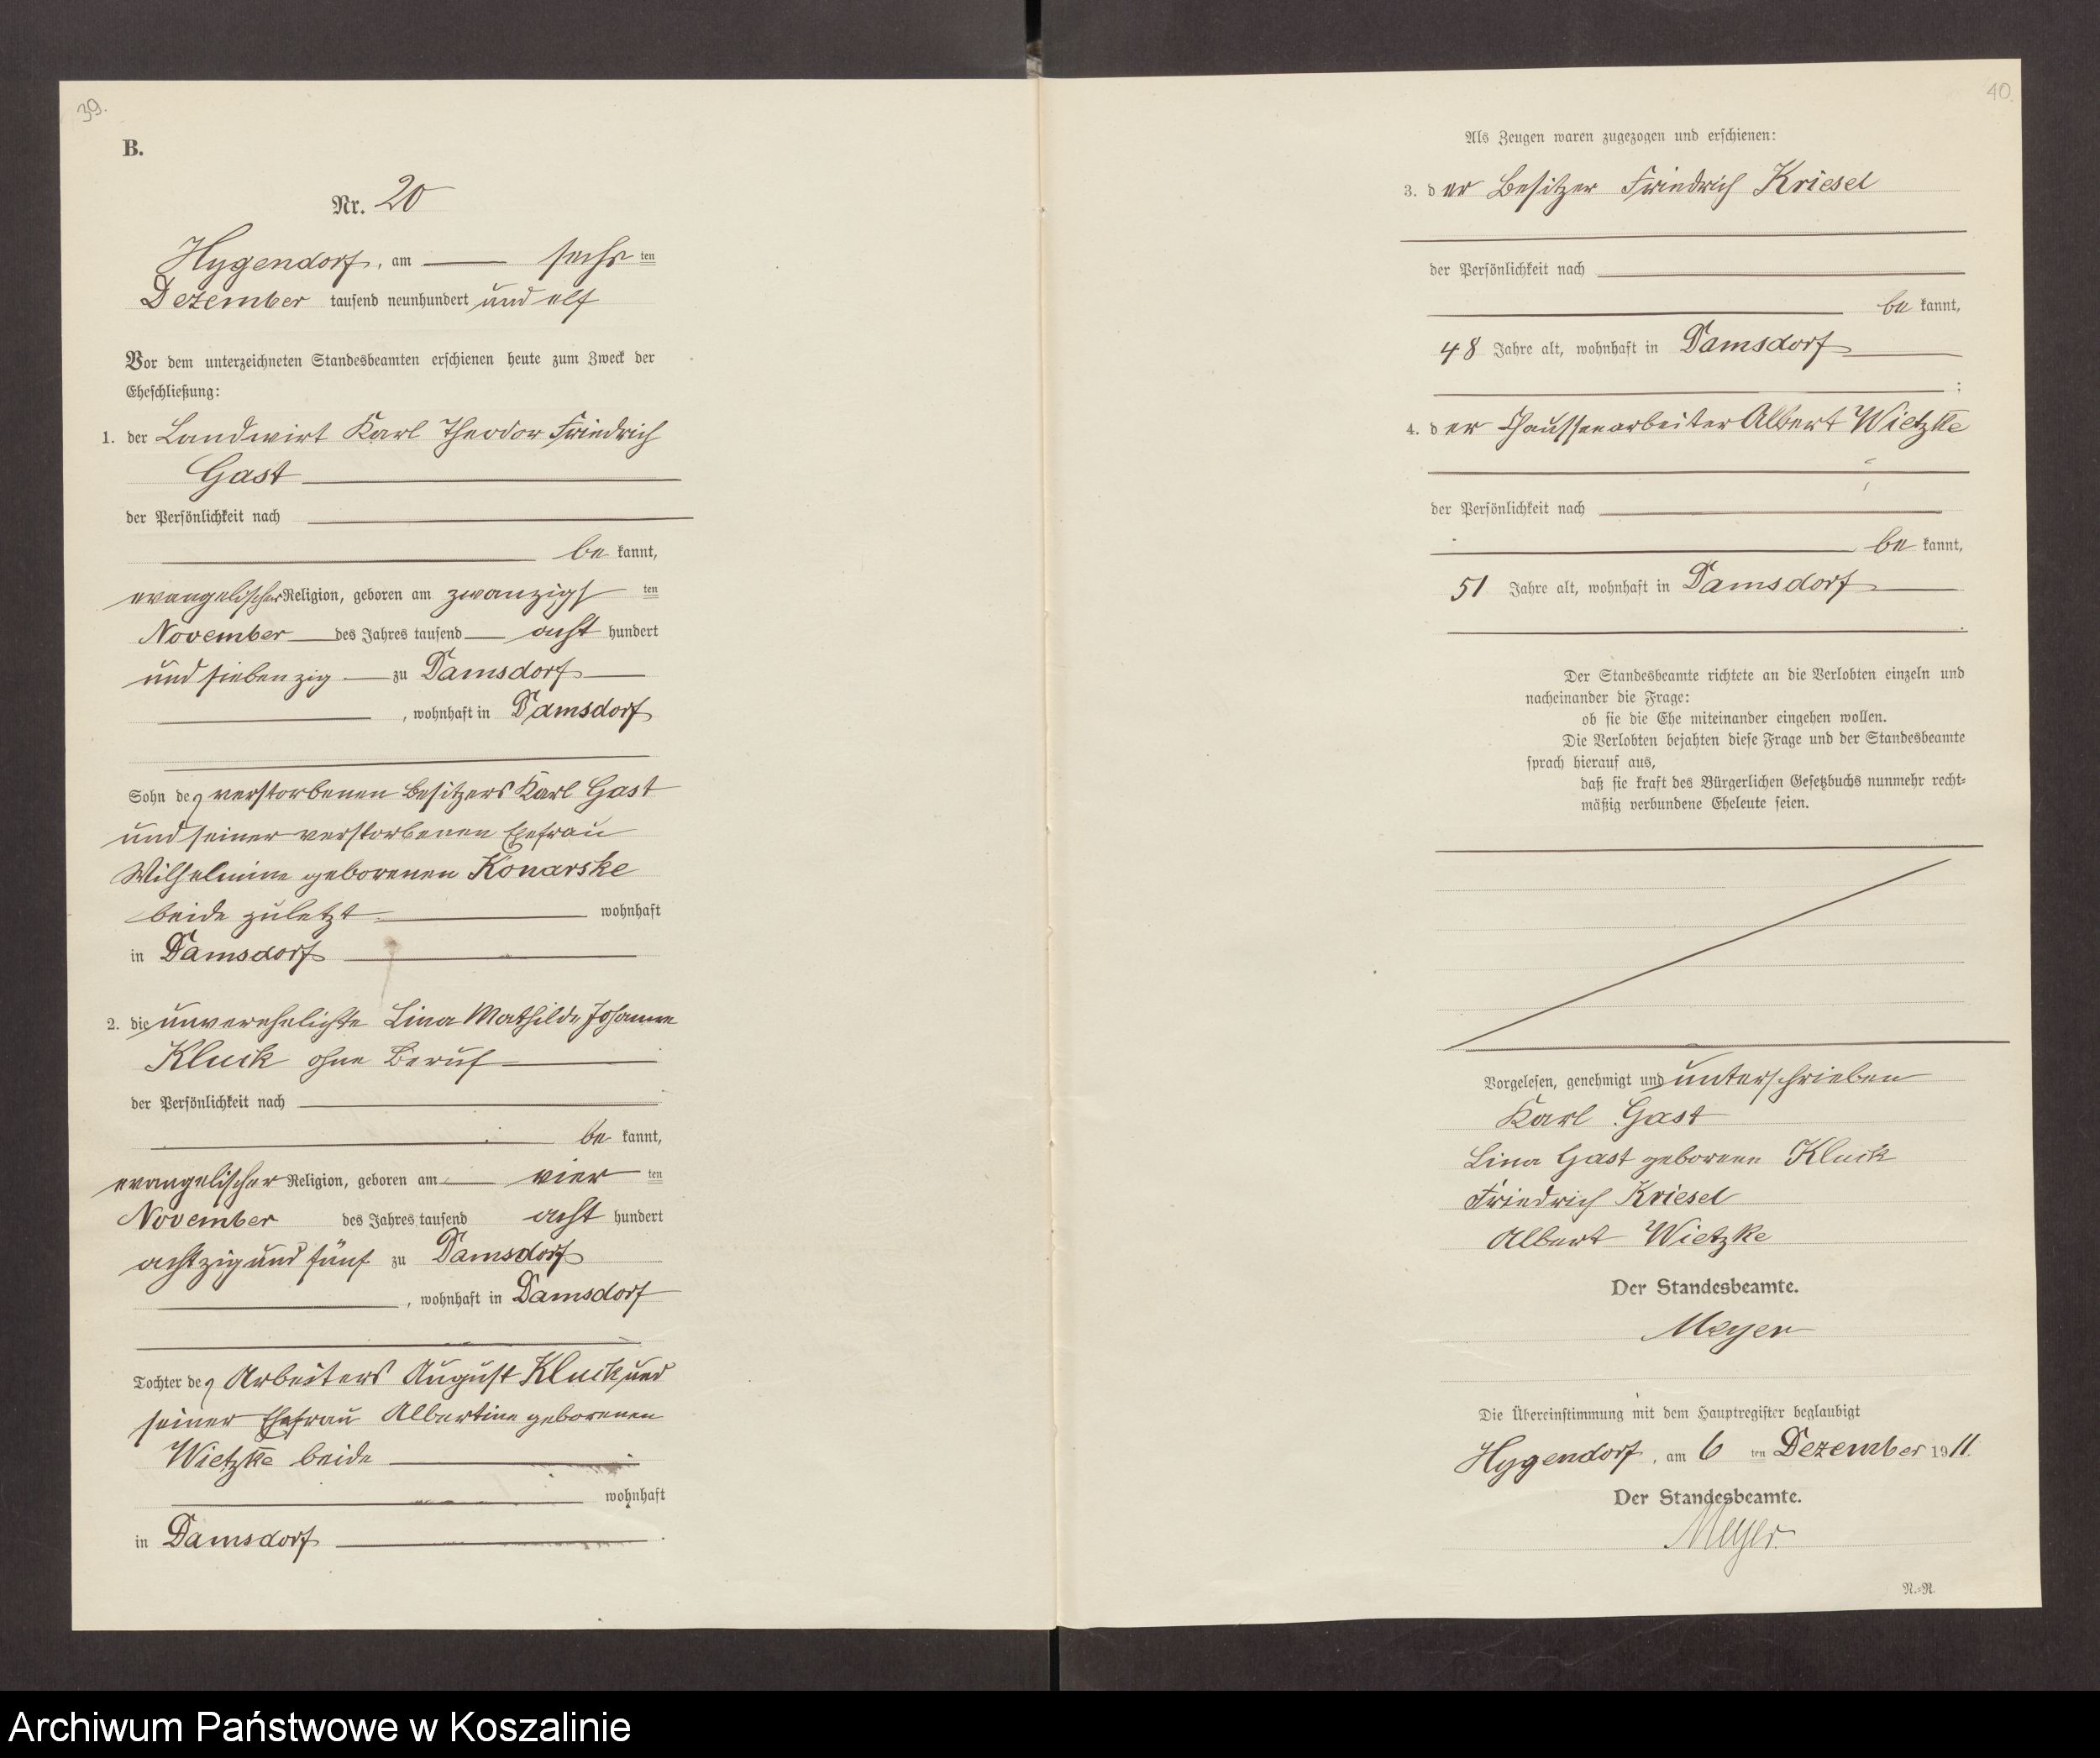 39.
B.
Nr. 20
Hygendorf, am sechsten
Dezember tausend neunhundert und elf
Vor dem unterzeichneten Standesbeamten erschienen heute zum Zweck der
Eheschließung:
1. der Landwirt Karl Theodor Friedrich
Gast
der Persönlichkeit nach
bekannt,
evangelischer Religion, geboren am zwanzigsten
November des Jahres tausend acht hundert
und siebenzig zu Damsdorf
, wohnhaft in Damsdorf
Sohn des verstorbenen Besitzers Karl Gast
und seiner verstorbenen Ehefrau
Wilhelmine geborenen Konarske
beide zuletzt wohnhaft
in Damsdorf
2. die unverehelichte Lina Mathilde Johanne
Kluck ohne Beruf
der Persönlichkeit nach
bekannt,
evangelischer Religion, geboren am vierten
November des Jahres tausend acht hundert
achtzig und fünf zu Damsdorf
, wohnhaft in Damsdorf
Tochter des Arbeiters August Kluck und
seiner Ehefrau Albertine geborenen
Wietzke beide
wohnhaft
in Damsdorf
40.
Als Zeugen waren zugezogen und erschienen:
3. der Besitzer Friedrich Kriesel
der Persönlichkeit nach
bekannt,
48 Jahre alt, wohnhaft in Damsdorf
;
4. der Chausseearbeiter Albert Wietzke
der Persönlichkeit nach
bekannt,
51 Jahre alt, wohnhaft in Damsdorf
.
Der Standesbeamte richtete an die Verlobten einzeln und
nacheinander die Frage:
ob sie die Ehe miteinander eingehen wollen.
Die Verlobten bejahten diese Frage und der Standesbeamte
sprach hierauf aus,
daß sie kraft des Bürgerlichen Gesetzbuchs nunmehr recht-
mäßig verbundene Eheleute seien.
Vorgelesen, genehmigt und unterschrieben
Karl Gast
Lina Gast geborene Kluck
Friedrich Kriesel
Albert Wietzke
Der Standesbeamte.
Meyer
Die Übereinstimmung mit dem Hauptregister beglaubigt
Hygendorf, am 6 ten Dezember 1911.
Der Standesbeamte.
Meyer.
N.=R.
Archiwum Państwowe w Koszalinie